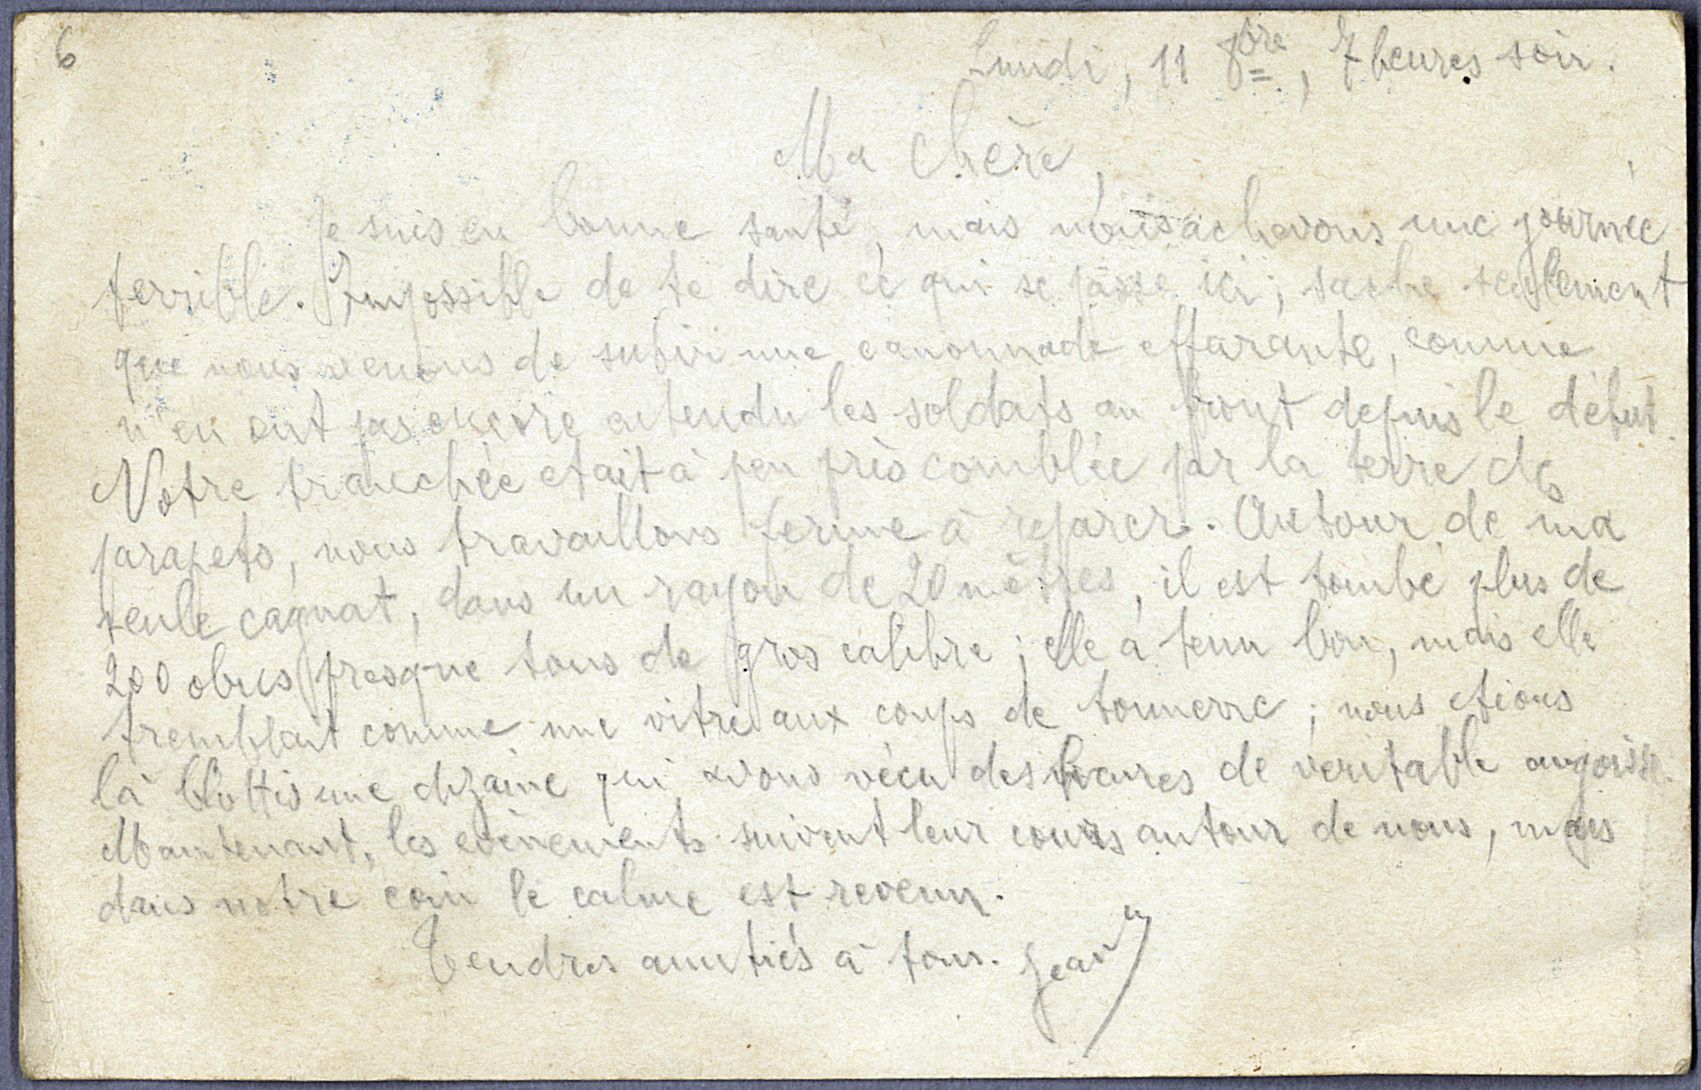 6
Lundi, 11 8bre, 7 heures soir.
Ma chère,
Je suis en bonne santé, mais nous achevons une journée
terrible. Impossible de te dire ce qui se passe ici ; sache seulement
que nous venons de subir une canonnade effarante, comme
n'en ont pas encore entendu les soldats au front depuis le début.
Notre tranchée était à peu près comblée par la terre des
parapets, nous travaillons ferme à réparer. Autour de ma
seule cagnat, dans un rayon de 20 mètres, il est tombé plus de
200 obus presque tous de gros calibre ; elle a tenu bon, mais elle
tremblait comme une vitre aux coups de tonnerre ; nous étions
là blottis une dizaine qui avons vécu des heures de véritable angoisse.
Maintenant, les evènements suivent leur cours autour de nous, mais
dans notre coin le calme est revenu.
Tendres amitiés à tous. Jean